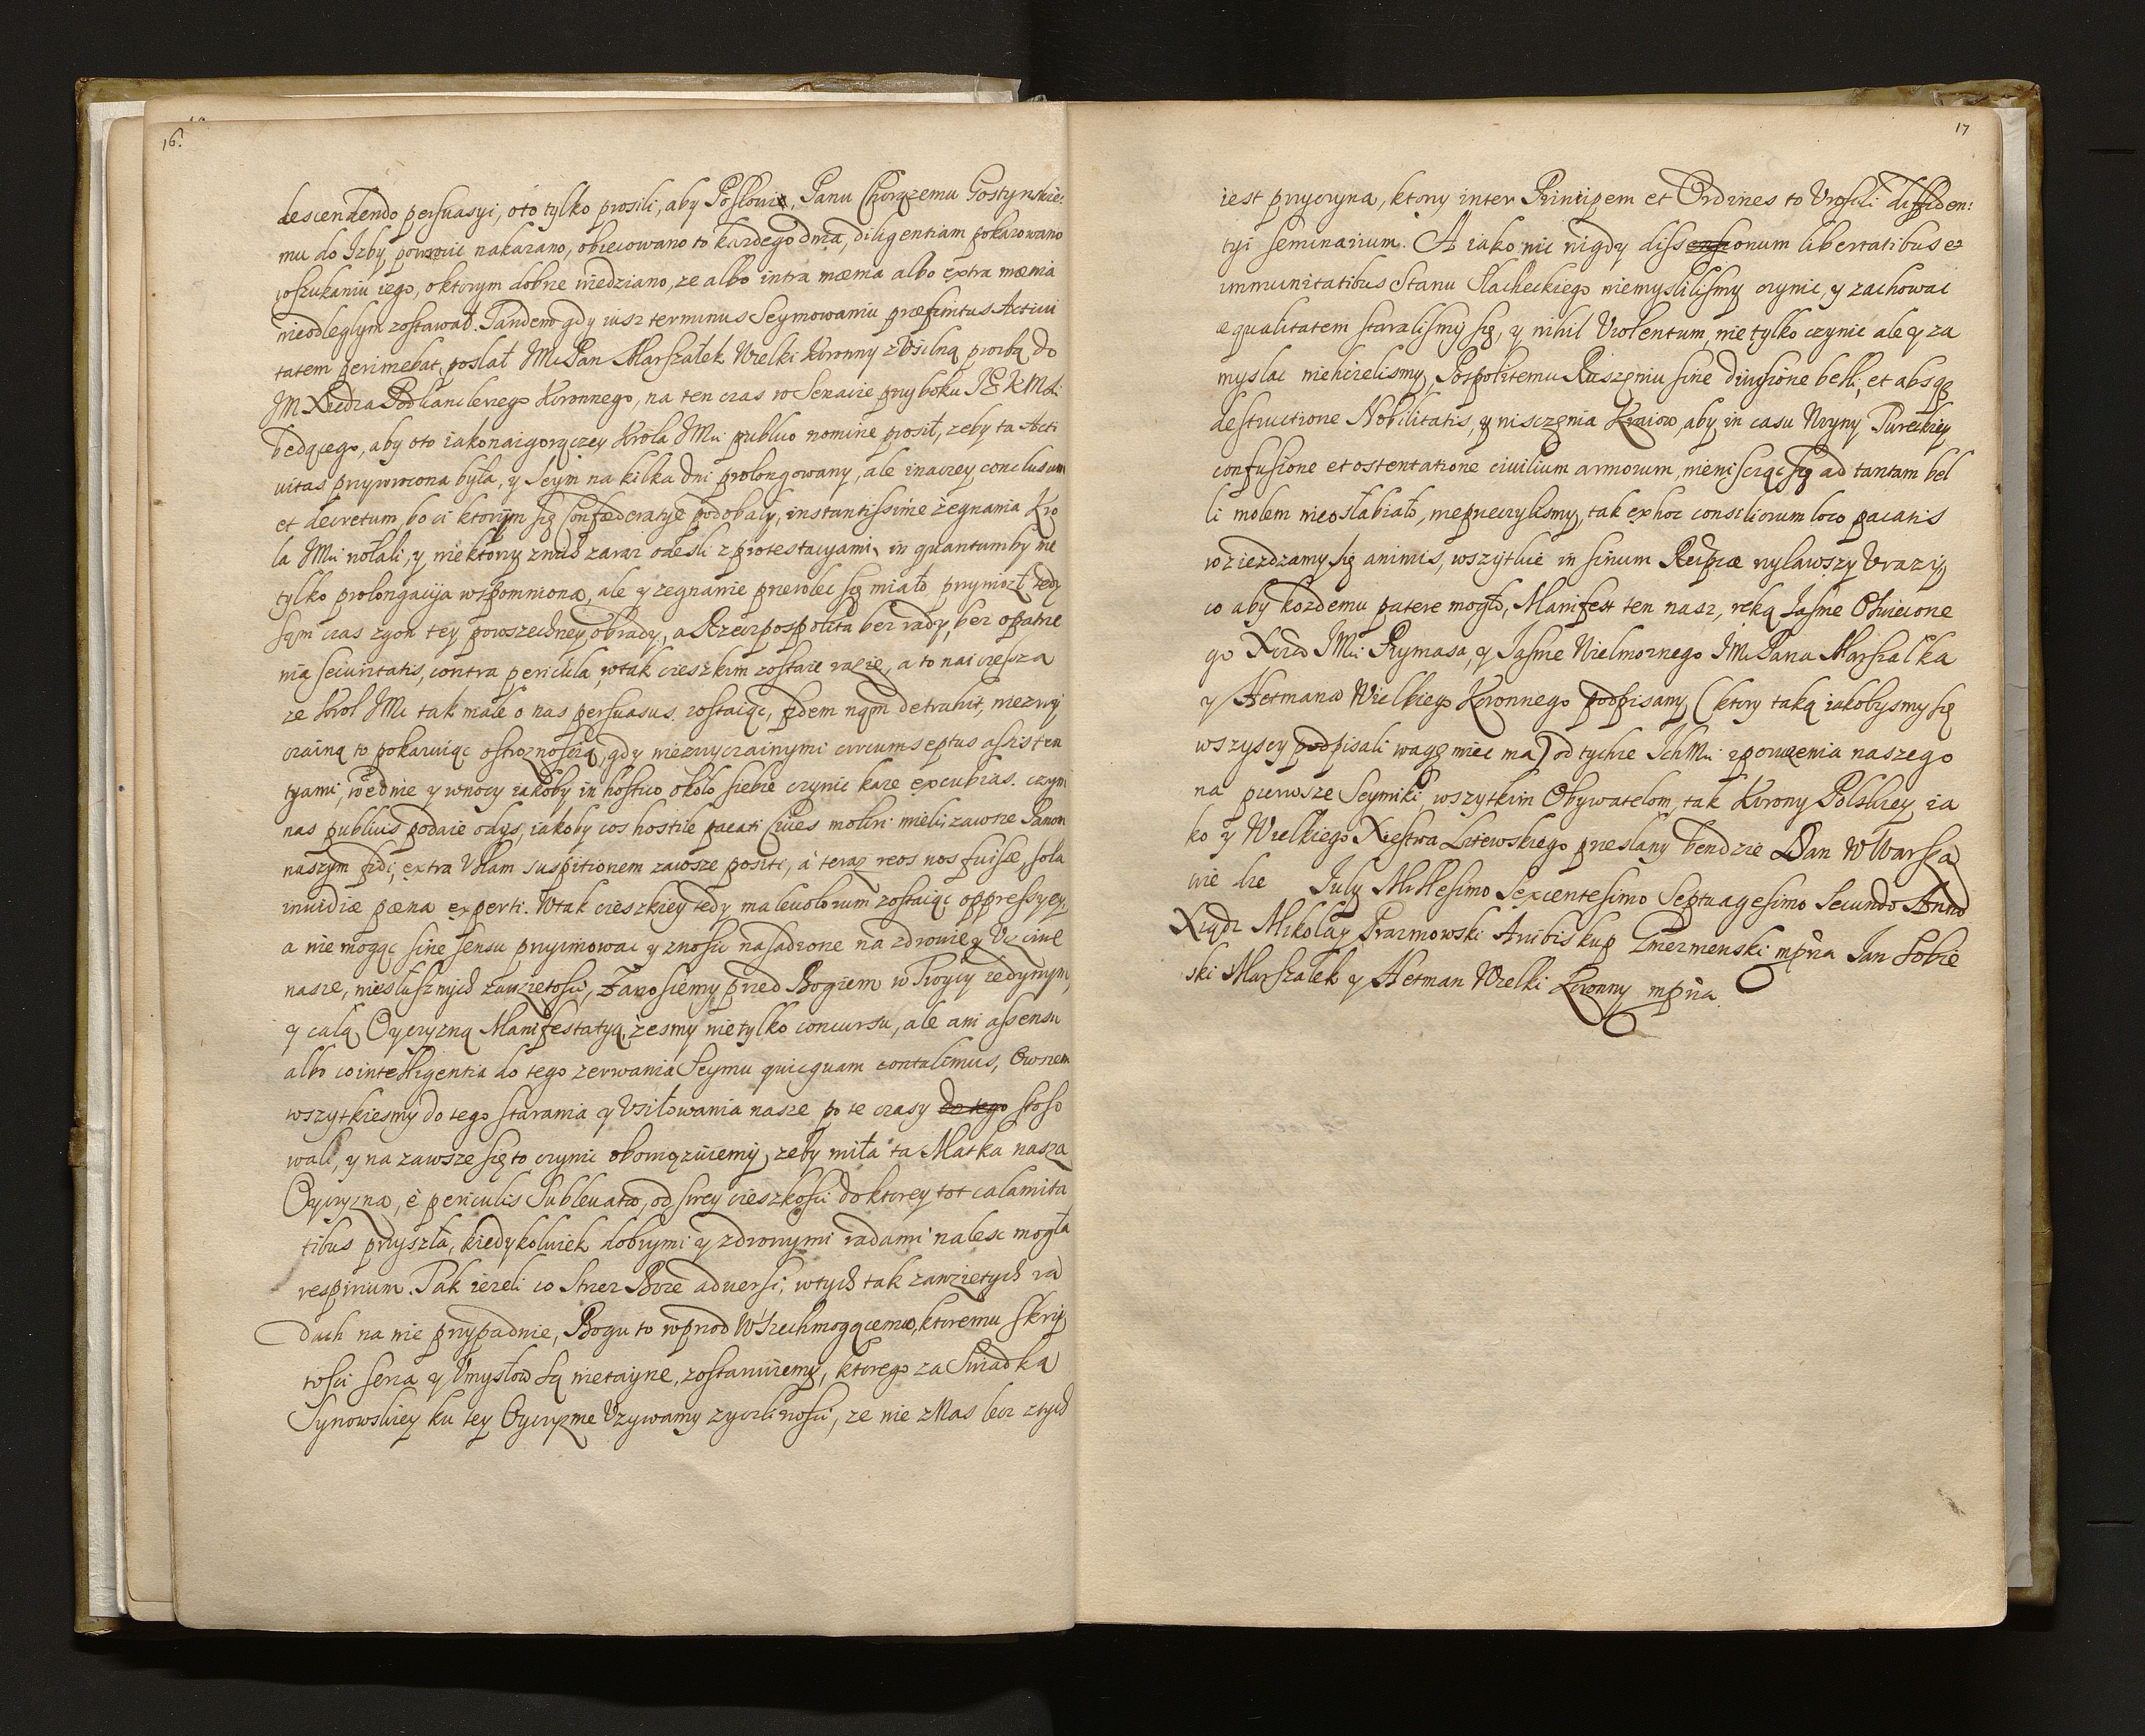 16.
descendendo persuasyi, oto tylko prosili, aby Posłowie, Panu Chorązemu Gostynskie:
mu do Izby powrocic nakazano, obiecowano to kazdego dnia, diligentiam pokazowano
wszukaniu iego, oktorym dobrze wiedziano, ze albo intra mænia albo extra mænia
nieodległym zostawał. Tandem gdy iusz terminus Seymowaniu præfinitus Activi
tatem perimebat, posłał JMć Pan Marszałek Wielki Koronny z usilną prozbą do
JM Xiedza Podkanclerzego Koronnego, na ten czas w Senacie przy boku JEKMci
będącego, aby oto iakonaigoręczey Krola JMci publico nomine prosił, zeby ta Acti
uitas przywrocona była, y Seym na kilka dni prolongowany, ale inaczey conclusum
et decretum, bo ci ktorym się Confæderatye podobały, instantissime żegnania Kro
la JMci wołali, y niektorzy znich zaraz odeszli z protestacyami, in quantumby nie
tylko prolongacyja wspomniona, ale y zegnanie przewlec się miało, przyniozł tedy
sąm czas zgon tey powszechney obrady, a Rzeczpospolita bez rady, bez opatrze
nia securitatis, contra pericula, wtak cieszkim zostaie razie, a to naiciesza
ze Krol JMć tak male o nas persuasus zostaiąc, fidem nąm detrahit, niezwy
czainą to pokazuiąc ostroznoscią, gdy niezwyczainymi circumseptus assisten
tyami, wednie y wnocy iakoby in hostico około siebie czynic kaze excubias. czym
nas publicis podaie odijs, iakoby cos hostile pacati Ciues moliri mieli, zawsze Panom
naszym fidi, extra Vllam suspitionem zawsze positi, á teraz reos nos fuisse, sola
inuidiæ pæna experti. Wtak cieszkiey tedy maleuolorum zostaiąc oppressyey,
a nie mogąc sine sensu przyimowac y znosic nasadzone na zdrowie y Vczciwe
nasze, niesłusznych zawziętosci, Zanosiemy przed Bogiem w Troycy iedynym,
y całą Oyczyzną Manifestatyą, żesmy nie tylko concursu, ale ani assensu
albo cointelligentia do tego zerwania Seymu quicquam contulimus, Owszem
wszytkiesmy do tego starania y Vsiłowania nasze po te czasy do tego stoso
wali, y na zawsze się to czynic obowiązuiemy, zeby miła ta Matka nasza
Oyczyzna, è periculis Subleuata, od swey cieszkosci do ktorey tot calamita
tibus przyszła, kiedykolwiek dobrymi y zdrowymi radami nalesc mogła
respirium. Tak iezeli co Strzez Boze aduersi, wtych tak zawzietych ra
dach na nie przypadnie, Bogu to wprzod Wszechmogącemu, ktoremu skry
tosci serca y Vmysłow są nietayne, zostawuiemy, ktorego za Swiadka
Synowskiey ku tey Oyczyznie Vzywamy zyczliwosci, ze nie z Nas lecz z tych
17
iest przyczyna, ktorzy inter Principem et Ordines to Wrosili diffiden:
tyi seminarium. A iako nic nigdy dissensionum libertatibus et
immunitatibus Stanu Slacheckiego niemyslilismy czynic, y zachowac
æqualitatem staralismy się, y nihil Violentum, nie tylko czynic ale y za
myslac niechcielismy, Pospolitemu Ruszęniu sine diuisione belli, et absq;
destructione Nobilitatis, y niszczęnia Kraiow, aby in casu Woyny Tureckiey
confusione et ostentatione ciuilium armorum, nieniszcząc się ad tantam bel
li molem nieosłabiało, nieprzeczylismy, tak ex hoc consiliorum loco pacatis
rozieżdzamy się animis, wszytkie in sinum Reipcæ wylawszy Vrazy,
co aby kozdemu patere mogło, Manifest ten nasz, ręką Jasne Oświecone
go Xcia JMci Prymasa, y Jasnie Wielmoznego JMć Pana Marszałka
y Hetmana Wielkiego Koronnego podpisany (ktory taką iakobysmy się
wszyscy podpisali wagę miec ma) od tychze IchMci z poruczenia naszego
na pierwsze Seymiki, wszytkim Obywatelom, tak Korony Polskiey, ia
ko y Wielkiego Xiestwa Litewskiego przesłany bendzie Dan W Warsza
wie die July Millesimo Sexcentesimo Septuagesimo Secundo Anno
Xiądz Mikołay Prazmowski Arcibiskup Gnieznienski mpria Jan Sobie
ski Marszałek y Hetman Wielki Koronny mpria.